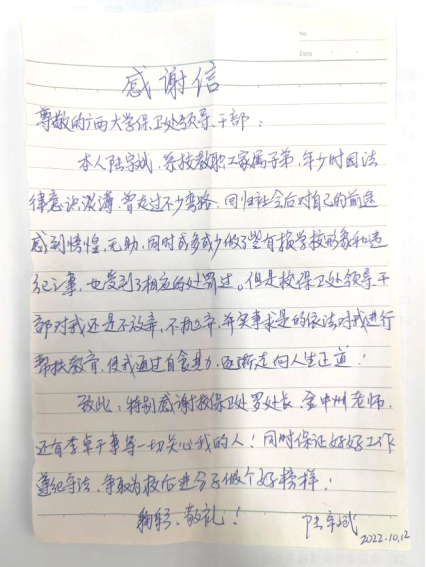 No
Date
感谢信
尊敬的广西大学保卫处领导、干部：
本人陆宇斌，系校教职工家属子弟，年少时因法
律意识淡薄，曾走过不少弯路，回归社会后对自己的前途
感到惆怅、无助，同时或多或少做了些有损学校形象和违
纪之事，也受到了相应的处罚过。但是校保卫处领导、干
部对我还是不放弃，不抛弃，并实事求是的依法对我进行
帮扶教育，使我通过自食其力，逐渐走向人生正道！
致此：特别感谢校保卫处罗处长、金中州老师，
还有李卓干事等一切关心我的人！同时保证好好工作
遵纪守法，争取为校后进分子做个好榜样！
鞠躬、敬礼！
2022.10.12